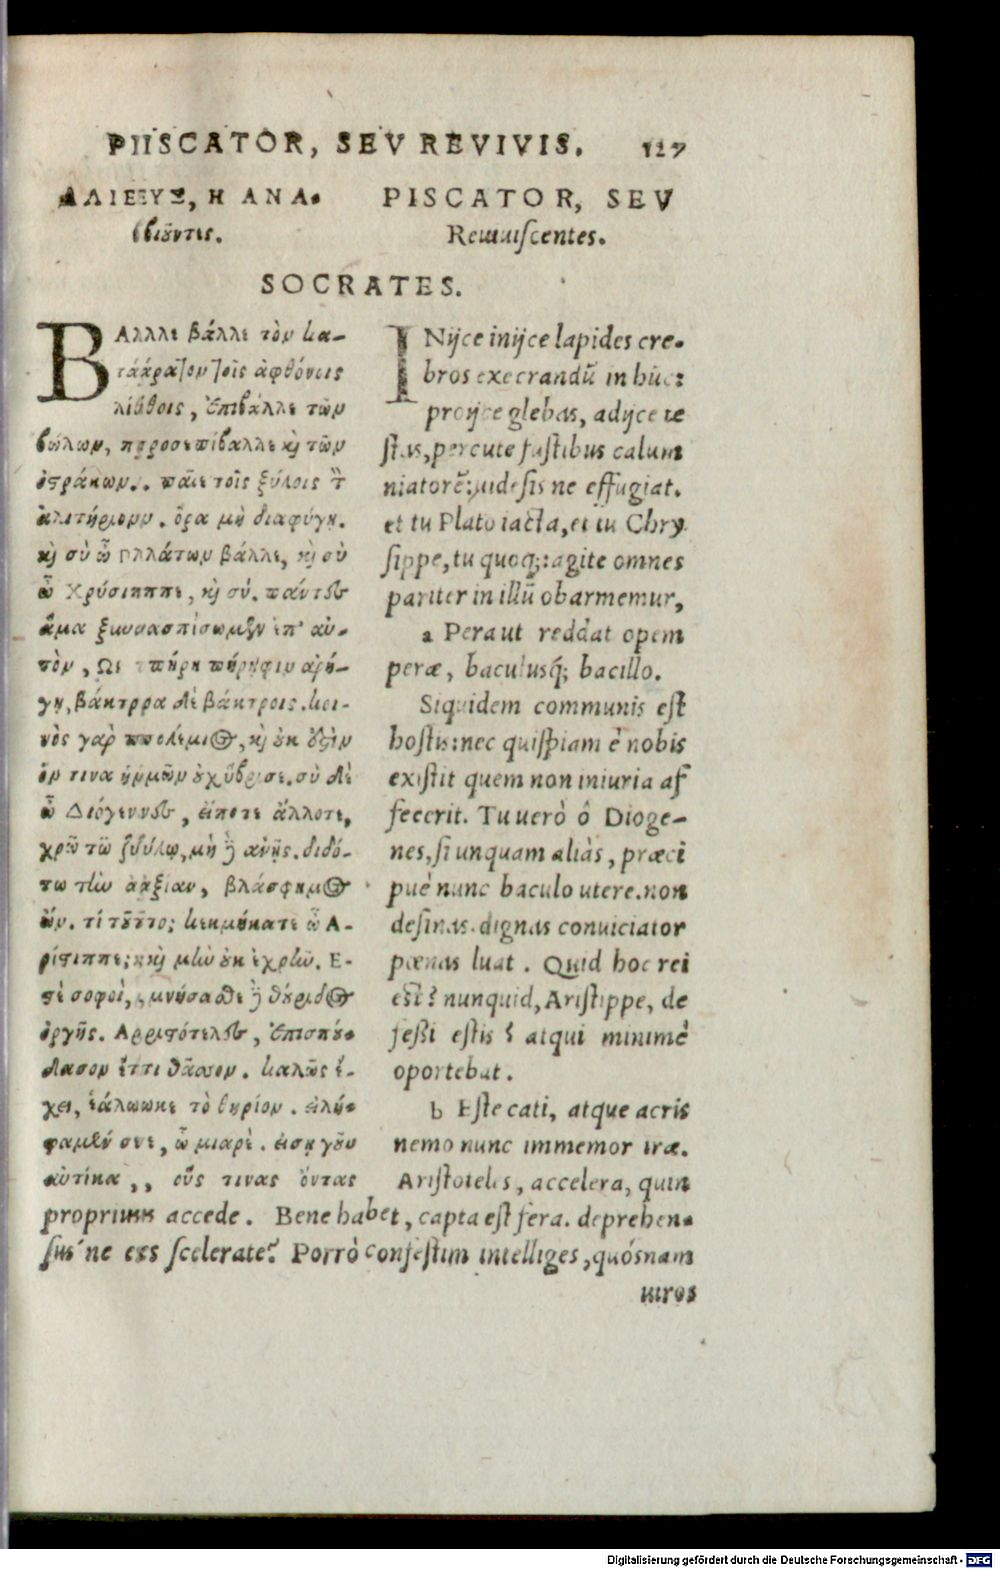 PIISCATOR, SEV REVIVIS. 127
ΑΛΙΕΞΥΣ, Η ΑΝΑ-
βιοῦντες.
ΒΑλλλε βάλλε τὸν κα-
τάάρατον τοῖς ἀφθόνοις
λίθθοις, ἐπιβάλλε τῶν
βώλων, προσεπίβαλλε καὶ τῶν
ὀστράκων.. παῖε τοῖς ξύλοις τὸν
ἀλιτήριονν. ὅρα μὴ διαφύγῃ.
καὶ σὺ ὦ Πλλάτων βάλλε, καὶ σὺ
ὦ Χρύσιπππε, καὶ σύ. πάντες
ἅμα ξυνασπίσωμεν ἐπ' αὐ-
τὸν, Ως πήρη πήρηφιν ἀρή-
γῃ, βάκτρρα δὲ βάκτροις. κοι-
νὸς γὰρ πολέμιος, καὶ οὐκ ἔστιν
ὅν τινα ἡμμῶν οὐχ ὕβρισε. σὺ δὲ
ὦ Διόγεννες, εἴποτε ἄλλοτε,
χρῶ τῷ ξύλῳ, μὴ δὲ ἀνῇς. διδό-
τω τὴν ἀαξίαν, βλάσφημος
ὤν. τί τοῦτο; κεκμήκατε ὦ Α-
ρίστιππε; καὶ μὴν οὐκ ἐχρῆν. Ε-
στὲ σοφοὶ, μνήσασθε δὲ θούριδος
ὀργῆς. Αρριστότελες, ἐπισπού-
δασον ἔττι θᾶσσον. καλῶς ἔ-
χει, ἑάλωωκε τὸ θηρίον. εἰλή-
φαμέν σνε, ὦ μιαρέ. εἴσῃ γοῦν
αὐτίκα,, οὕς τινας ὄντας
PISCATOR, SEV
Reuiuiscentes.
SOCRATES.
INijce inijce lapides cre-
bros execrandū in hūc:
proijce glebas, adijce te
stas, percute fustibus calum
niatorē: uide sis ne effugiat.
et tu Plato iacta, et tu Chry
sippe, tu quoq;: agite omnes
pariter in illū obarmemur,
a Pera ut reddat opem
peræ, baculusq́; bacillo.
Siquidem communis est
hostis: nec quispiam è nobis
existit quem non iniuria af
fecerit. Tu uerò ô Dioge-
nes, si unquam aliàs, præci
puè nunc baculo utere. non
desinas. dignas conuiciator
pœnas luat. Quid hoc rei
est? nunquid, Aristippe, de
fessi estis? atqui minimè
oportebat.
b Este cati, atque acris
nemo nunc immemor iræ.
Aristoteles, accelera, quin
propriuss accede. Bene habet, capta est fera. deprehen-
sus'ne ees scelerate? Porrò confestim intelliges, quósnam
uiros
Digitalisierung gefördert durch die Deutsche Forschungsgemeinschaft - DFG